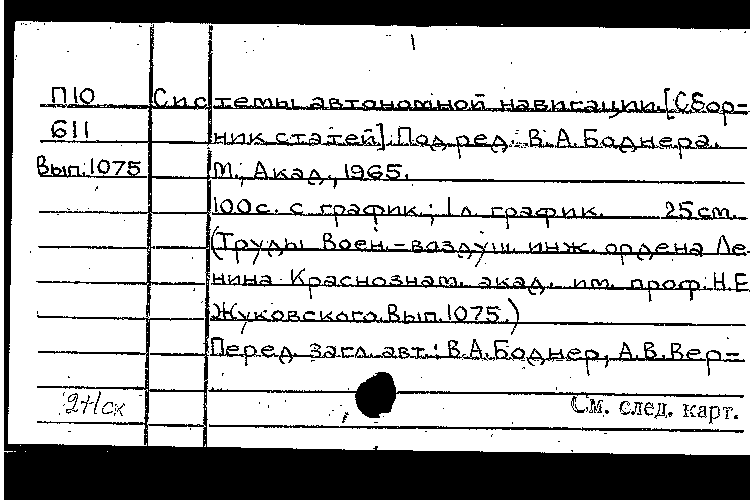 П10 Системы автономной навигации.[Сбор-
611 ник статей]. Под ред. В.А.Боднера.
Вып.1075 М., Акад., 1965.
100с. с график.; 1л. график. 25см.
(Труды Воен.-воздуш. инж. ордена Ле-
нина Краснознам. акад. им. проф.Н.Е.
Жуковского.Вып.1075.)
Перед загл. авт.: В.А.Боднер, А.В.Вер-
См. след. карт.